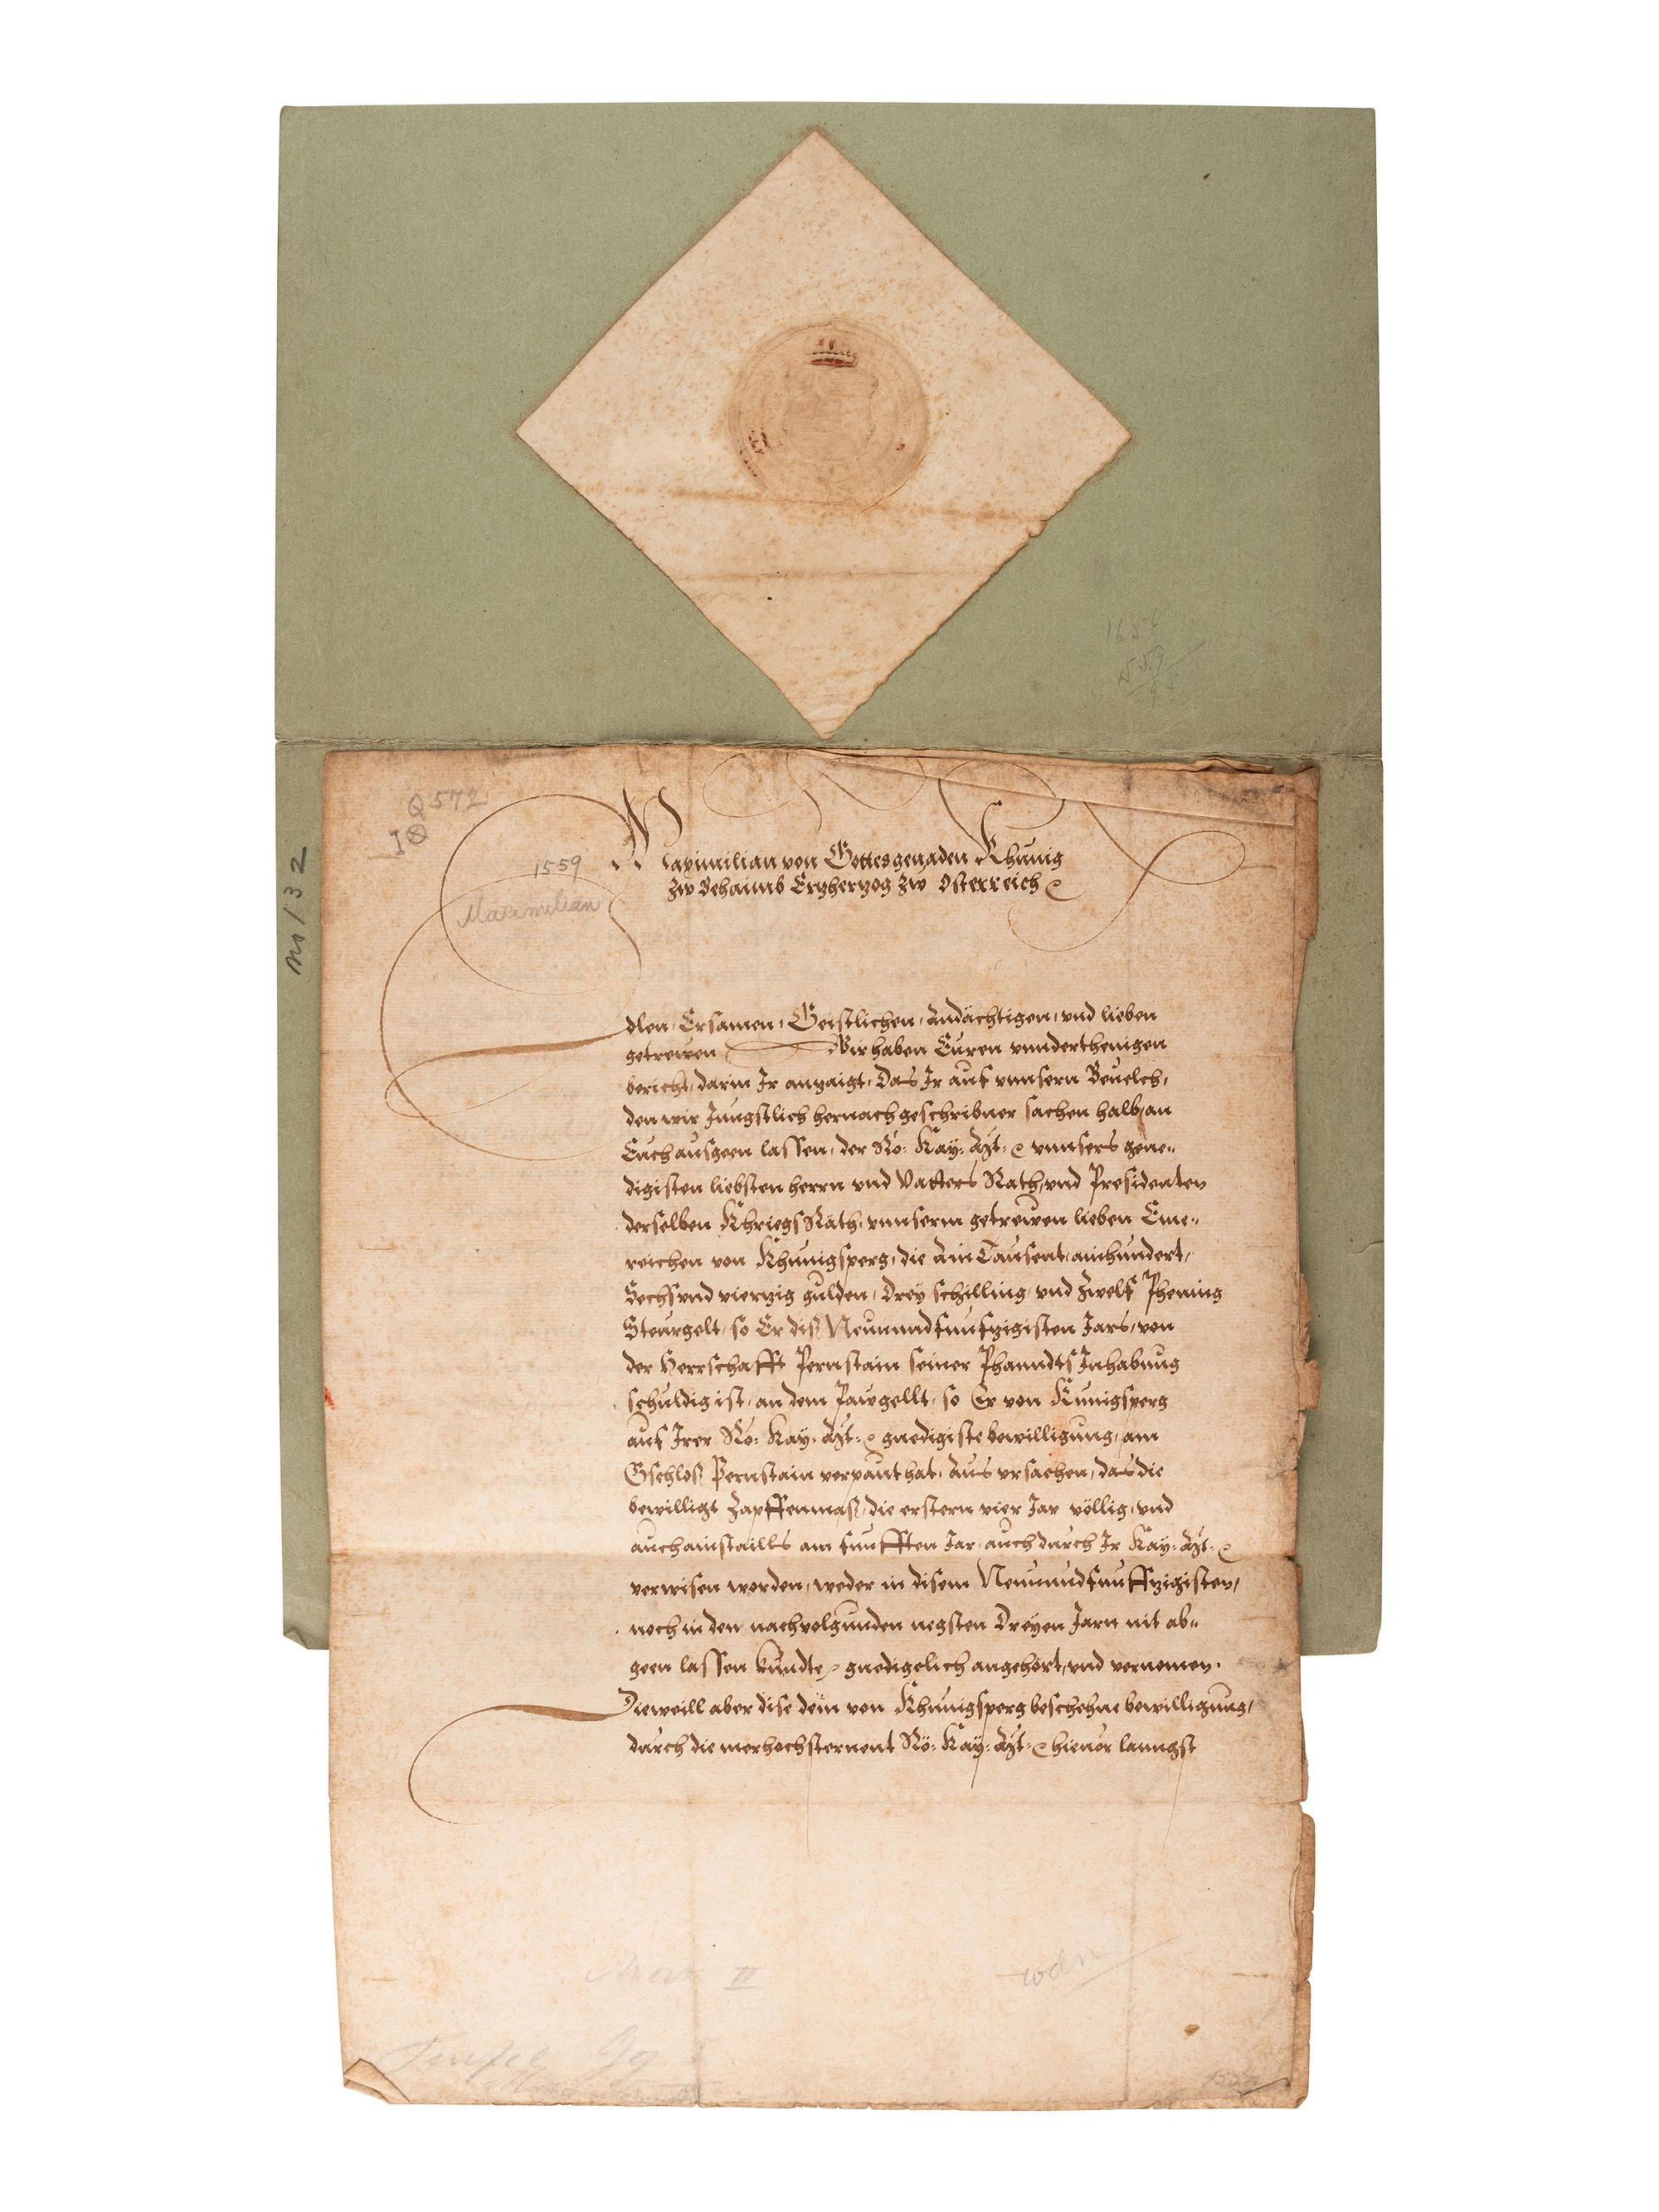 1656
559
Q 572
I
1559
Maximilian
No 132
Maximilian von Gottes genaden Khunig
zw Behaimb Ertzhertzog zw Osterreich
Edlen, Ersamen, Geistlichen, Andächtigen, vnd lieben
getrewen Wir haben Euren vnnderthenigen
bericht, darin Ir anzaigt, Das Ir auf vnnsern Beuelch,
den wir Jungstlich hernachgeschribner sachen halb, an
Euch ausgeen lassen, der Rö: Kay: Mt: vnnsers gene„
digisten liebsten herrn vnd Vatters Rath, vnd Presidenten
derselben KhriegsRäth, vnnserm getrewen lieben Eme„
reichen von Khunigsperg, die Ain Tausent, ainhundert,
Sechsvnd viertzig gulden, Drey schilling vnd Zwelf Phening
Steurgelt, so Er diß Neunundfunftzigisten Jars, von
der Herrschafft Pernstain seiner Phanndts Inhabung
schuldig ist, an dem Pawgellt, so Er von Kunigsperg
auf Irer Rö: Kay: Mt: gnedigiste bewilligung, am
Gschloß Pernstain verpaut hat, Aus vrsachen, das die
bewilligt Zapffenmaß, die erstern vier Jar völlig, vnd
auch ainstaills am funfften Jar, auch durch Ir Kay: Mt:
verwisen worden, weder in disem Neunundfunfftzigisten,
noch in den nachvolgunden negsten Dreyen Jarn nit ab„
geen lassen kundte, gnedigelich angehört, vnd vernomen.
Dieweill aber dise dem von Khunigsperg beschehne bewilligung,
durch die merhochsternent Rö: Kay: Mt: hieuor lanngst
Max II